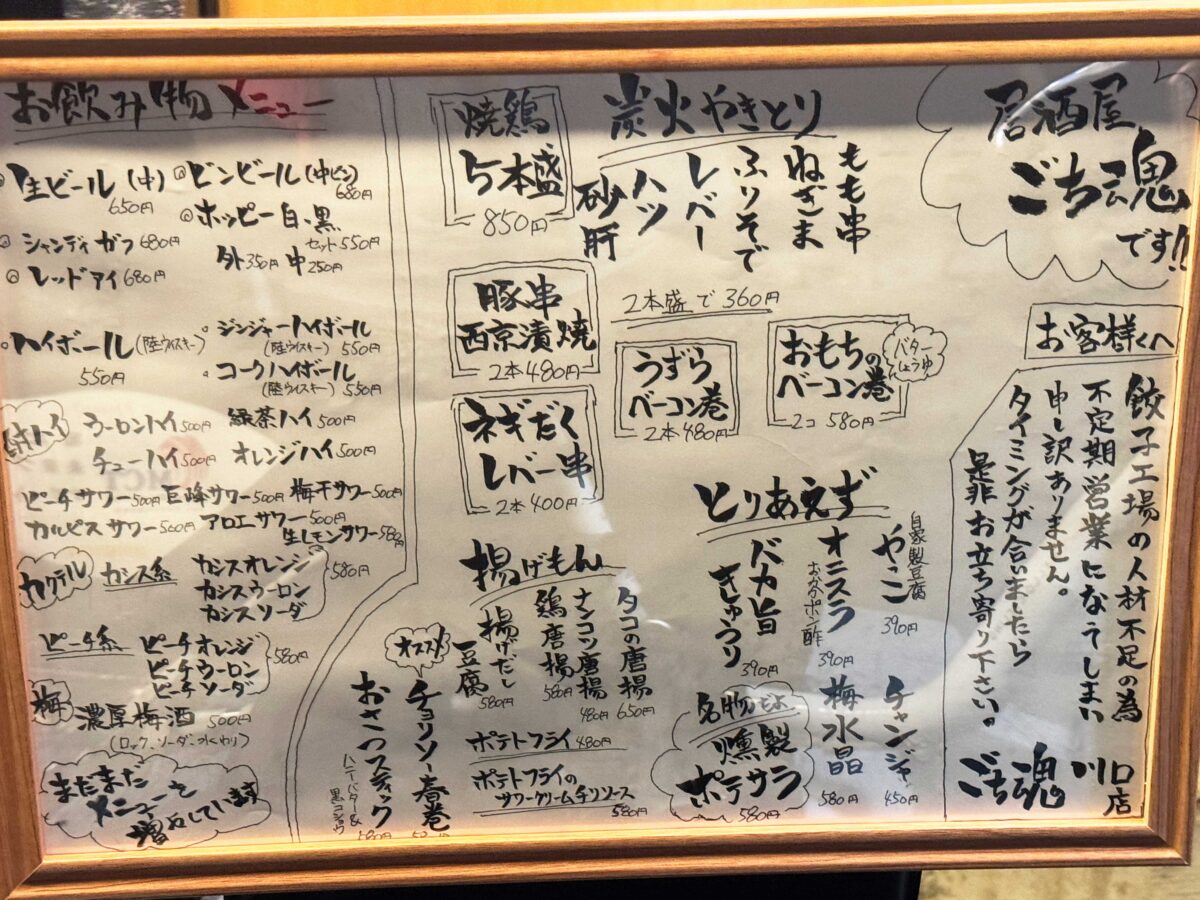 居酒屋
ごち魂
です!!
お客様へ
餃子工場の人材不足の為
不定期営業になってしまい
申し訳ありません。
タイミングが合いましたら
是非お立ち寄り下さい。
ごち魂 川口店
炭火やきとり
もも串
ねぎま
ふりそで
レバー
ハツ
砂肝
2本盛で360円
焼鶏
5本盛
850円
豚串
西京漬焼
2本480円
うずら
ベーコン巻
2本480円
おもちの
ベーコン巻
バター
しょうゆ
2コ 580円
ネギだく
レバー串
2本400円
とりあえず
自家製豆腐
やっこ
390円
オニスラ
390円
バカ旨
きゅうり
390円
チャンジャ
450円
梅水晶
580円
名物
燻製
ポテサラ
580円
揚げもん
タコの唐揚
650円
ナンコツ唐揚
480円
鶏唐揚
580円
揚げだし
豆腐
580円
ポテトフライ 480円
ポテトフライの
サワークリームチリソース
580円
オススメ
チョリソー春巻
おさつスティック
ハニーバター&
黒コショウ
580円
お飲み物メニュー
◎生ビール(中)
650円
◎ビンビール(中ビン)
680円
◎ホッピー白、黒
セット550円
外350円 中250円
◎シャンディガフ680円
◎レッドアイ680円
ハイボール(陸ウイスキー)
550円
ジンジャーハイボール
(陸ウイスキー) 550円
コークハイボール
(陸ウイスキー) 550円
ウーロンハイ500円
緑茶ハイ500円
チューハイ500円
オレンジハイ500円
ピーチサワー500円
巨峰サワー500円
梅干サワー500円
カルピスサワー500円
アロエサワー500円
生レモンサワー580円
カクテル
カシス系
カシスオレンジ
カシスウーロン
カシスソーダ
580円
ピーチ系
ピーチオレンジ
ピーチウーロン
ピーチソーダ
580円
梅
濃厚梅酒 500円
(ロック、ソーダ、水わり)
まだまだ
メニューを
増やしています